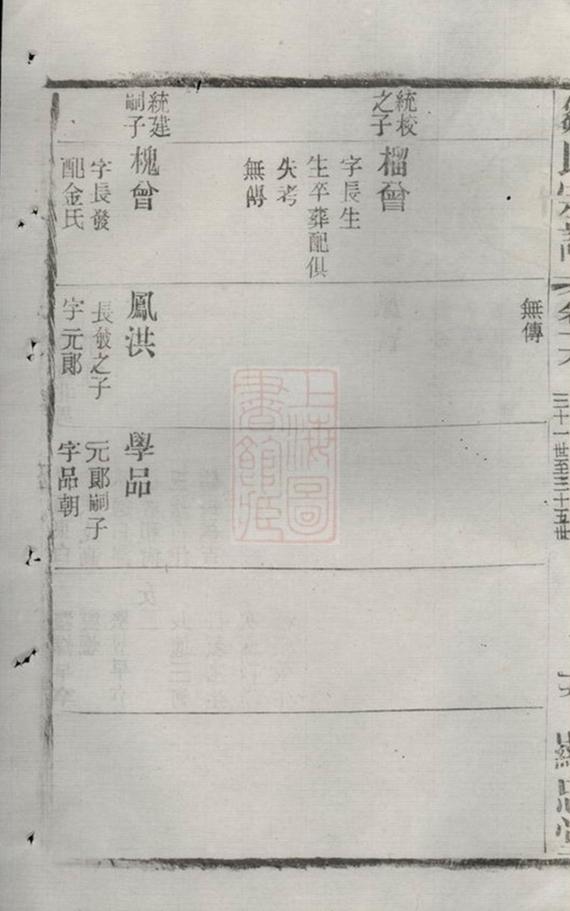 三十一世至三十五世
無傳
統校
之子
榴曾
字長生
生卒葬配俱
失考
無傳
統建
嗣子
槐曾
字長發
配金氏
鳳洪
長發之子
字元郎
學品
元郎嗣子
字品朝
上海圖
書館藏